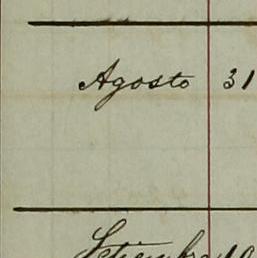 Agosto 31
Setiembre 10